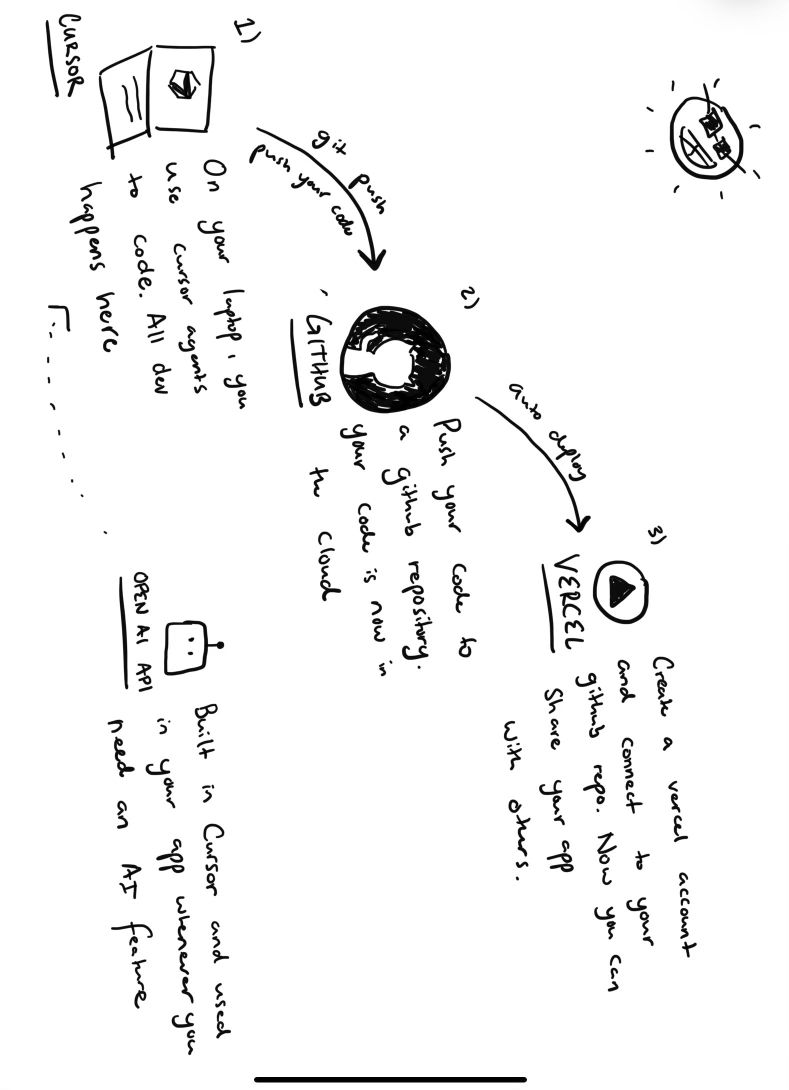 1)
CURSOR
On your laptop, you
use cursor agents
to code. All dev
happens here
git push
push your code
2)
GITHUB
Push your code to
a github repository.
your code is now in
the cloud
auto deploy
3)
VERCEL
Create a vercel account
and connect to your
github repo. Now you can
share your app
with others.
OPEN AI API
Built in Cursor and used
in your app whenever you
need an AI feature